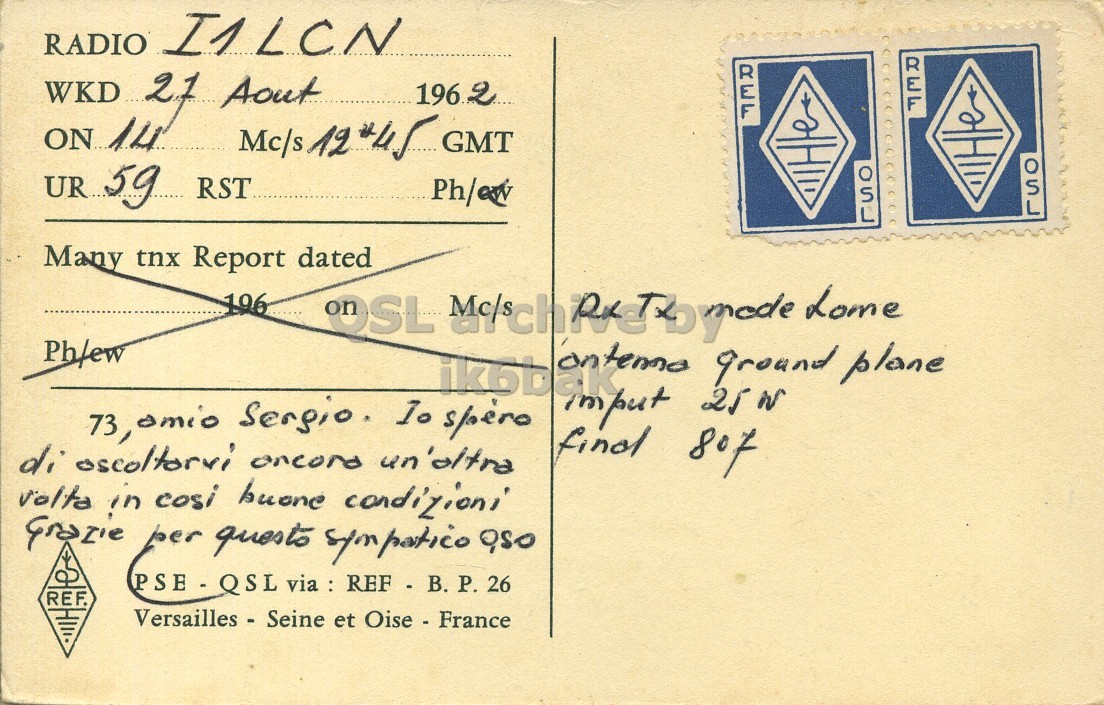 RADIO I1LCN
WKD 27 Aout 1962
ON 14 Mc/s 12H45 GMT
UR 59 RST Ph/cw
Many tnx Report dated
196 on Mc/s
Ph/cw
73, amio Sergio. Io spèro
di ascoltarvi ancora un'altra
volta in cosi buone condizioni
Grazie per questo sympatico QSO
REF.
PSE - QSL via : REF - B. P. 26
Versailles - Seine et Oise - France
REF
QSL
REF
QSL
Rx Tx made home
antenna ground plane
imput 25 W
final 807
QSL archive by
ik6bak